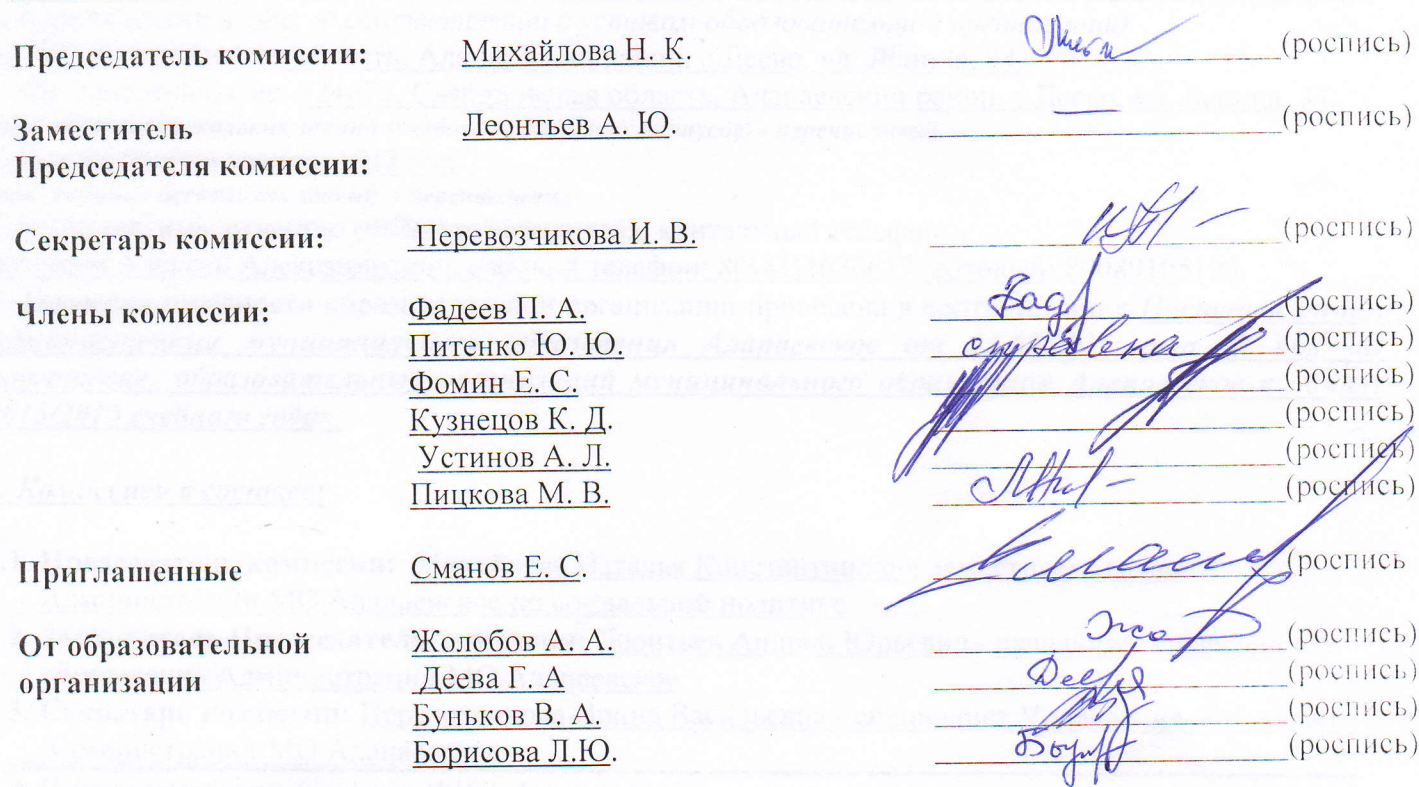 Председатель комиссии: Михайлова Н. К. (роспись)
Заместитель Леонтьев А. Ю. (роспись)
Председателя комиссии:
Секретарь комиссии: Перевозчикова И. В. (роспись)
Члены комиссии: Фадеев П. А. (роспись)
Питенко Ю. Ю. справка (роспись)
Фомин Е. С. (роспись)
Кузнецов К. Д. (роспись)
Устинов А. Л. (роспись)
Пицкова М. В. (роспись)
Приглашенные Сманов Е. С. (роспись
От образовательной Жолобов А. А. (роспись)
организации Деева Г. А (роспись)
Буньков В. А. (роспись)
Борисова Л.Ю. (роспись)